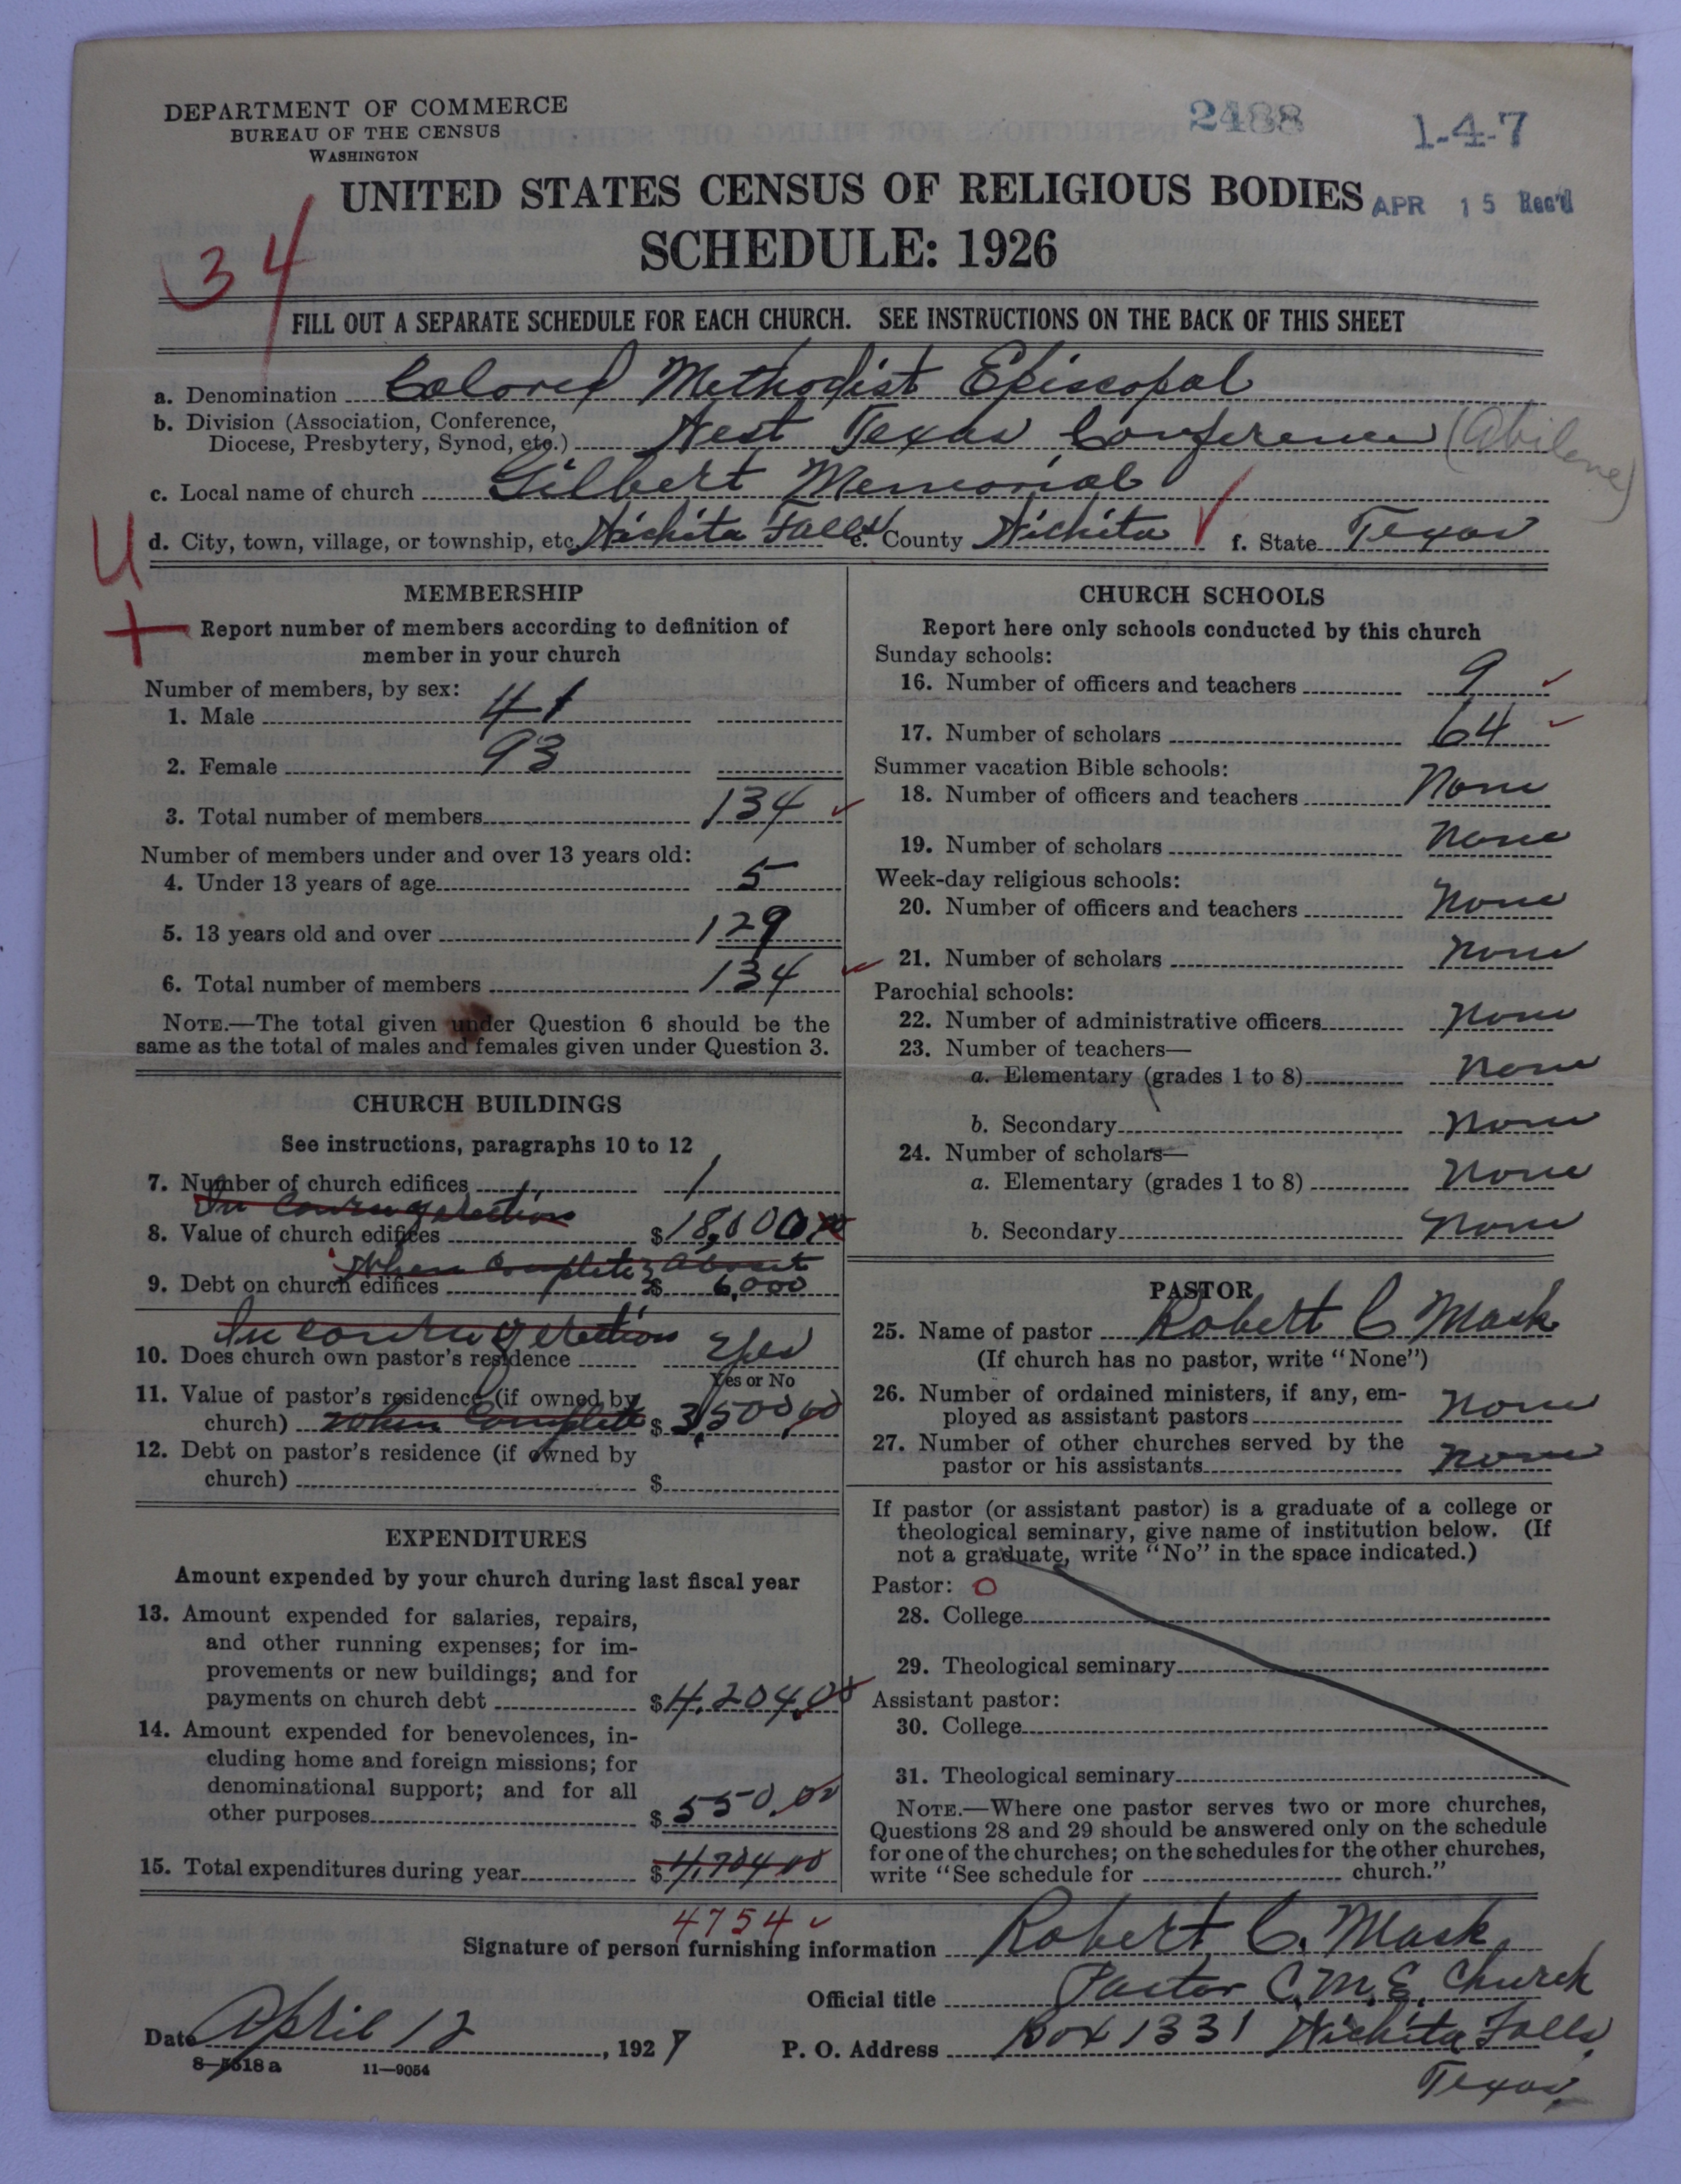 DEPARTMENT OF COMMERCE
BUREAU OF THE CENSUS
WASHINGTON
2488
1-4-7
UNITED STATES CENSUS OF RELIGIOUS BODIES
APR 15 Rec'd
SCHEDULE: 1926
34
FILL OUT A SEPARATE SCHEDULE FOR EACH CHURCH. SEE INSTRUCTIONS ON THE BACK OF THIS SHEET
a. Denomination Colored Methodist Episcopal
b. Division (Association, Conference,
Diocese, Presbytery, Synod, etc.) West Texas Conference (Abilene)
c. Local name of church Gilbert Memorial
d. City, town, village, or township, etc. Wichita Falls e. County Wichita f. State Texas
U
MEMBERSHIP
Report number of members according to definition of
member in your church
Number of members, by sex:
1. Male 41
2. Female 93
3. Total number of members 134
Number of members under and over 13 years old:
4. Under 13 years of age 5
5. 13 years old and over 129
6. Total number of members 134
NOTE.—The total given under Question 6 should be the
same as the total of males and females given under Question 3.
CHURCH BUILDINGS
See instructions, paragraphs 10 to 12
7. Number of church edifices 1
In course of erection
8. Value of church edifices $18,000
When complete about
9. Debt on church edifices $ 6,000
In course of erection
10. Does church own pastor's residence Yes
Yes or No
11. Value of pastor's residence (if owned by
church) When Complete $3,500.00
12. Debt on pastor's residence (if owned by
church) $
EXPENDITURES
Amount expended by your church during last fiscal year
13. Amount expended for salaries, repairs,
and other running expenses; for im-
provements or new buildings; and for
payments on church debt $4,204.00
14. Amount expended for benevolences, in-
cluding home and foreign missions; for
denominational support; and for all
other purposes $ 550.00
15. Total expenditures during year $4,704.00
4754
CHURCH SCHOOLS
Report here only schools conducted by this church
Sunday schools:
16. Number of officers and teachers 9
17. Number of scholars 64
Summer vacation Bible schools:
18. Number of officers and teachers None
19. Number of scholars None
Week-day religious schools:
20. Number of officers and teachers None
21. Number of scholars None
Parochial schools:
22. Number of administrative officers None
23. Number of teachers—
a. Elementary (grades 1 to 8) None
b. Secondary None
24. Number of scholars—
a. Elementary (grades 1 to 8) None
b. Secondary None
PASTOR
25. Name of pastor Robert C Mask
(If church has no pastor, write "None")
26. Number of ordained ministers, if any, em-
ployed as assistant pastors None
27. Number of other churches served by the
pastor or his assistants None
If pastor (or assistant pastor) is a graduate of a college or
theological seminary, give name of institution below. (If
not a graduate, write "No" in the space indicated.)
Pastor: O
28. College
29. Theological seminary
Assistant pastor:
30. College
31. Theological seminary
NOTE.—Where one pastor serves two or more churches,
Questions 28 and 29 should be answered only on the schedule
for one of the churches; on the schedules for the other churches,
write "See schedule for church."
Signature of person furnishing information Robert C. Mask
Official title Pastor C.M.E. Church
Date April 12, 1927
P. O. Address Box 1331 Wichita Falls,
Texas.
8—5618 a 11—9054